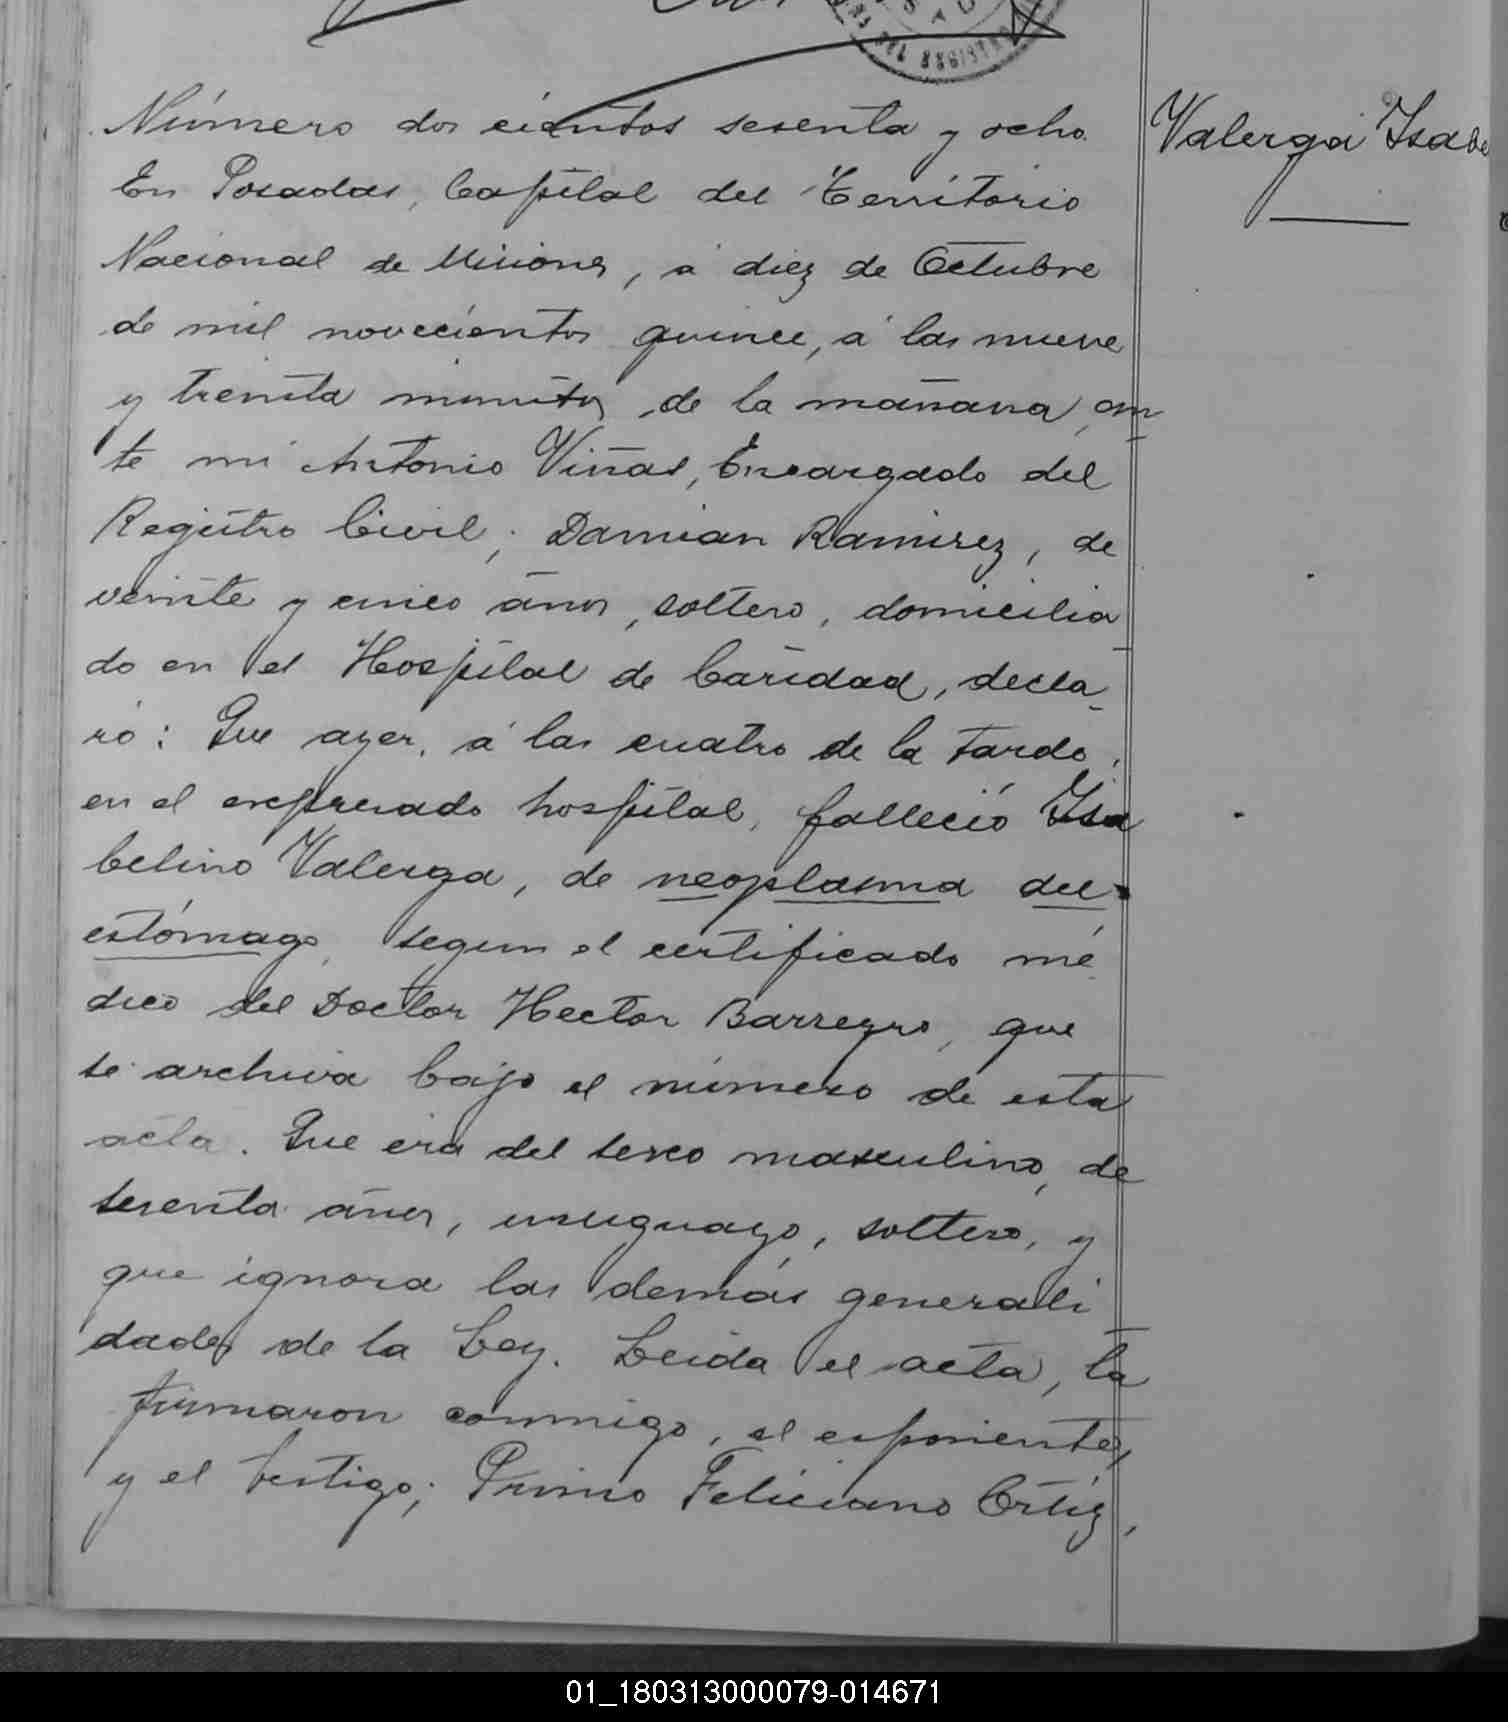 Número dos cientos sesenta y ocho.
En Posadas, Capital del Territorio
Nacional de Misiones, á diez de Octubre
de mil novecientos quince, á las nueve
y treinta minutos de la mañana, an
te mi Antonio Viñas, Encargado del
Registro Civil; Damian Ramirez, de
veinte y cinco años, soltero, domicilia
do en el Hospital de Caridad, decla
ró: Que ayer, á las cuatro de la tarde,
en el expresado hospital, falleció Isa
belino Valerga, de neoplasma del
estómago, segun el certificado mé
dico del Doctor Hector Barreyro, que
se archiva bajo el número de esta
acta. Que era del sexo masculino, de
sesenta años, uruguayo, soltero, y
que ignora las demás generali
dades de la Ley. Leida el acta, la
firmaron conmigo, el esponente,
y el testigo; Primo Feliciano Ortiz,
Valerga Isabe
DEL REGISTRO
01_180313000079-014671